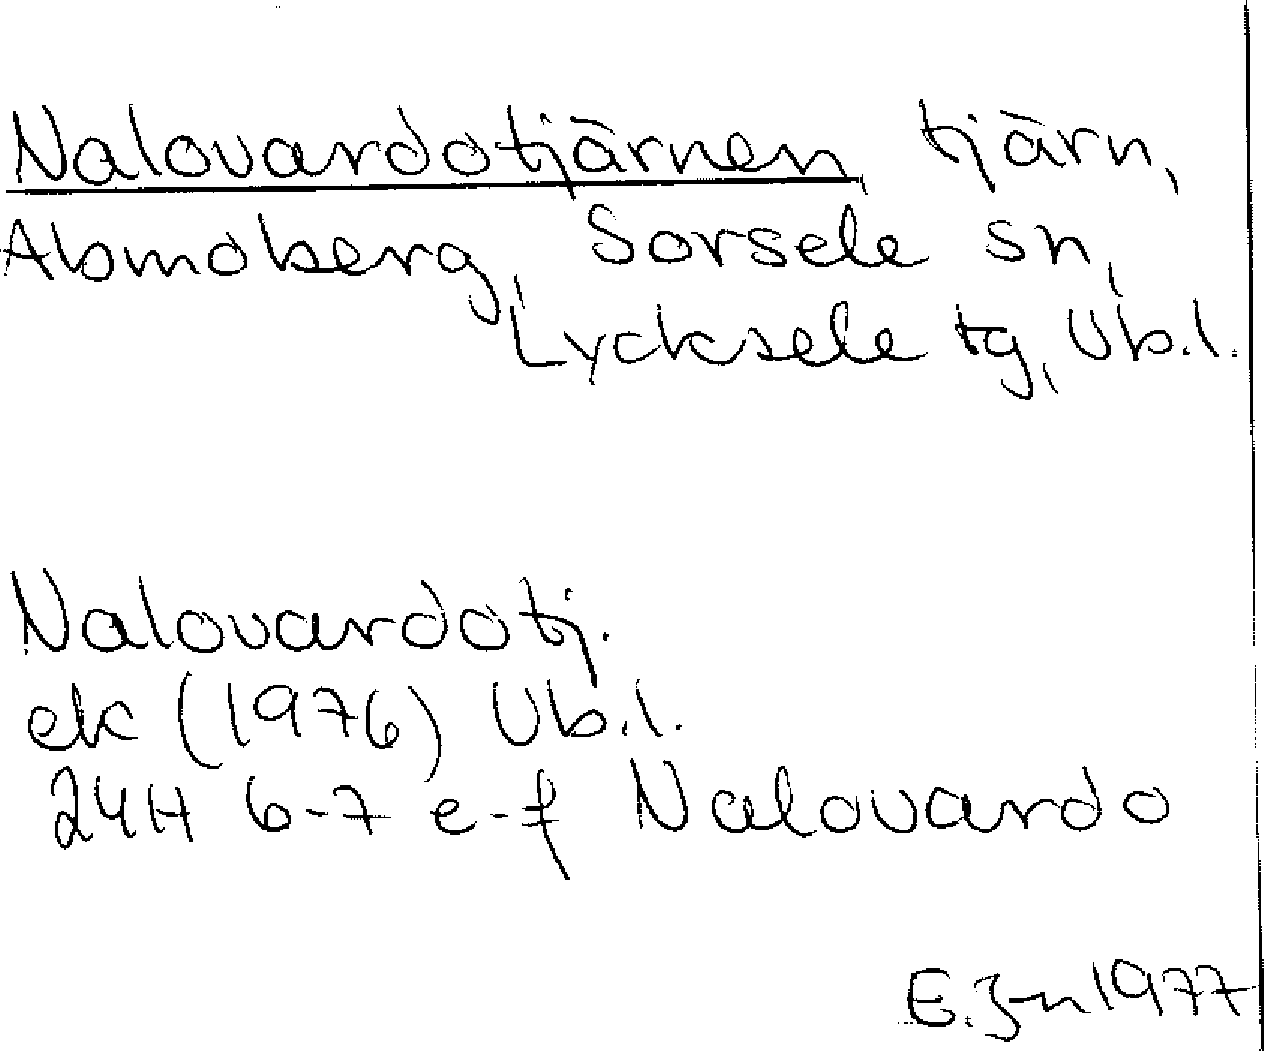 Nalovardotjärnen, tjärn,
Abmoberg, Sorsele sn,
Lycksele tg, Vb.l.
Nalovardotj.
ek (1976) Vb.l.
24H 6-7 e-f Nalovardo
E. 1977